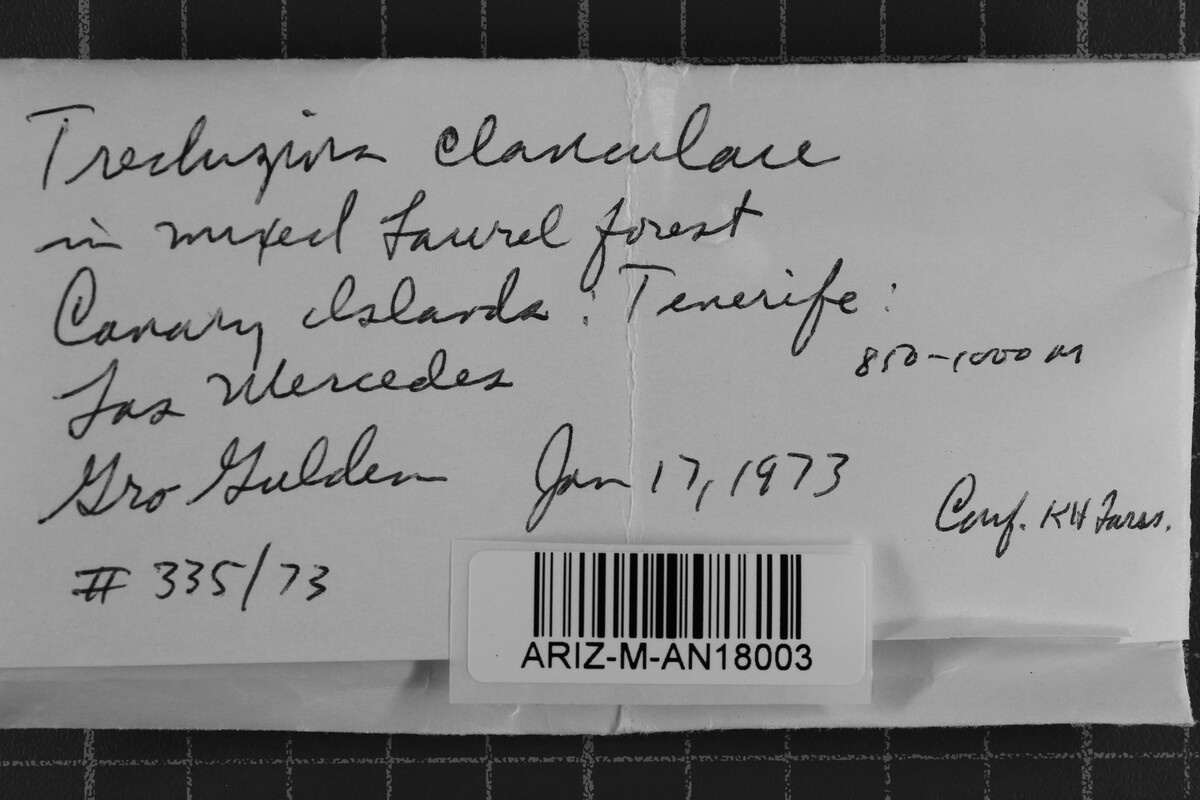 Trechispora clanculare
in mixed Laurel forest
Canary Islands: Tenerife:
850-1000 m
Las Mercedes
Gro Gulden Jan 17, 1973
Conf. KH Larss.
# 335/73
ARIZ-M-AN18003